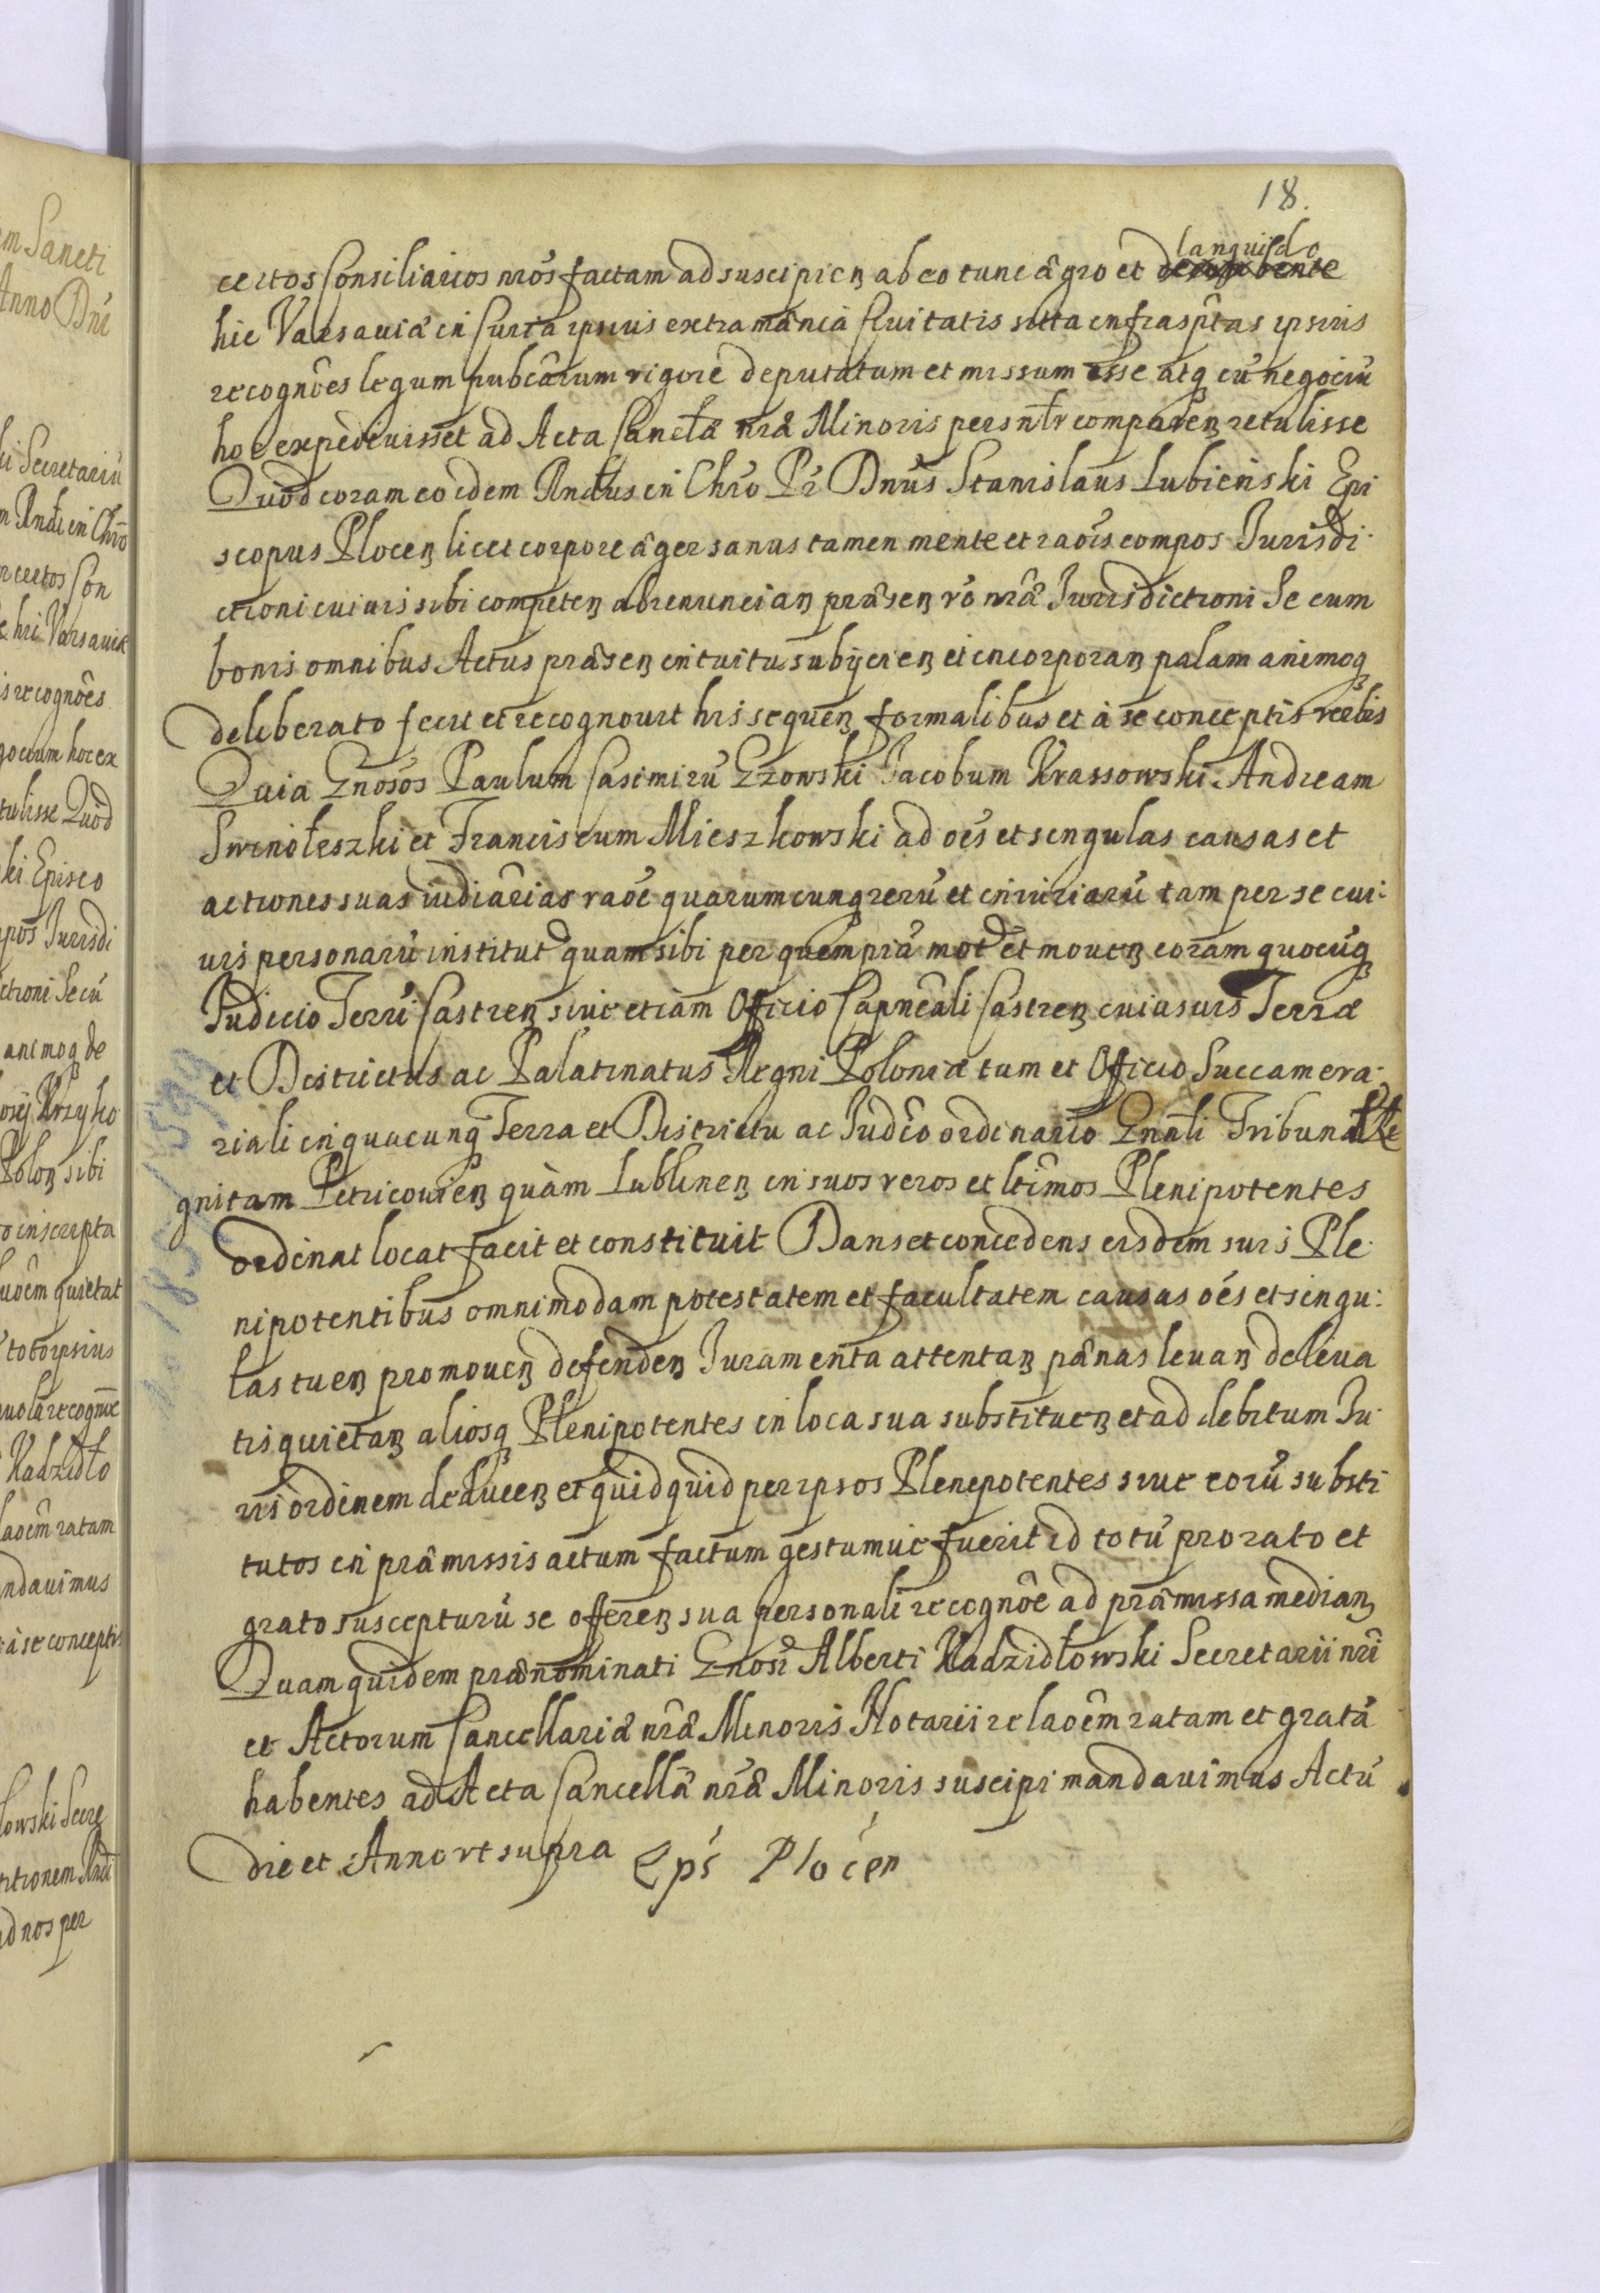 18.
languido
certos Consiliarios nr̃os factam ad suscipien̄ ab eo tunc ægro et decumbente
hic Varsaviæ in Curia ipsius extra mænia Civitatis sitta infrasp̃tas ipsius
recogno͂es legum pubca͂rum rigore deputatum et missum esse atq cũ negociũ
hoc expedivisset ad Acta Cancłæ nr̃æ Minoris persnłr comparen̄ retulisse
Quod coram eo idem Rndus in Chr̃o Pr̃ Dnũs Stanislaus Lubieński Epi
scopus Plocen̄ licet corpore æger sanus tamen mente et rao͂is compos Jurisdi-
ctioni cuivis sibi competen̄ abrenuncian̄ præsen̄ vo nr̃æ Jurisdictioni Se cum
bonis omnibus Actus præsen̄ intuitu subijcien̄ et incorporan̄ palam animoq
deliberato fecit et recognovit his sequen̄ formalibus et à se conceptis verbis
Quia Gnosos Paulum Casimirũ Gzowski Jacobum Krassowski Andream
Swinołeszki et Franciscum Mieszkowski ad oẽs et singulas causas et
actiones suas iudiãrias rao͂e quarumcunq rerũ et iniuriarũ tam per se cui-
vis personarũ institut quam sibi per quempiã mot et moven̄ coram quocũq
Judicio Terrĩ Castren̄ sive etiam Officio Capneãli Castren̄ cuiusvis Terræ
et Districtus ac Palatinatus Regni Poloniæ tum et Officio Succamera-
riali in quacunq Terra et Districtu ac Judĩo ordinario Gnałi Tribunał Re
gni tam Petricovien̄ quàm Lublinen̄ in suos veros et ltĩmos Plenipotentes
ordinat locat facit et constituit Dans et concedens eisdem suis Ple-
nipotentibus omnimodam potestatem et facultatem causas oẽs et singu-
las tuen̄ promoven̄ defenden̄ Juramenta attentan̄ pænas levan̄ de leva
tis quietan̄ aliosq Plenipotentes in loca sua substituen̄ et ad debitum Ju-
ris ordinem deducen̄ et quidquid per ipsos Plenipotentes sive eorũ substi
tutos in præmissis actum factum gestumve fuerit id totũ pro rato et
grato suscepturũ se offeren̄ sua personali recogno͂e ad præmissa median̄
Quam quidem prænominati Gnosi Alberti Kadzidłowski Secretarii nr̃i
et Actorum Cancellariæ nr̃æ Minoris Notarii relao͂em ratam et gratã
habentes ad Acta Cancellæ nr̃æ Minoris suscipi mandavimus Actũ
die et Anno vt supra Eps Plocen